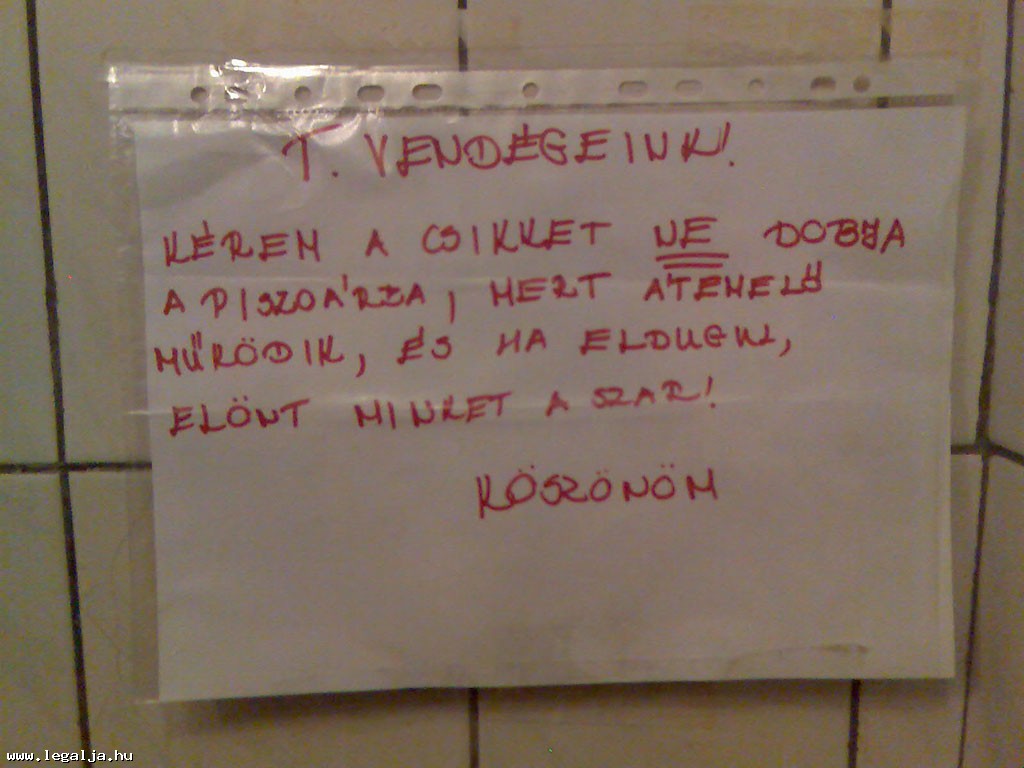 T. VENDÉGEINK!
KÉREM A CSIKKET NE DOBJA
A PISZOÁRBA, MERT ÁTEMELŐ
MŰKÖDIK, ÉS HA ELDUGUL,
ELÖNT MINKET A SZAR!
KÖSZÖNÖM
www.legalja.hu